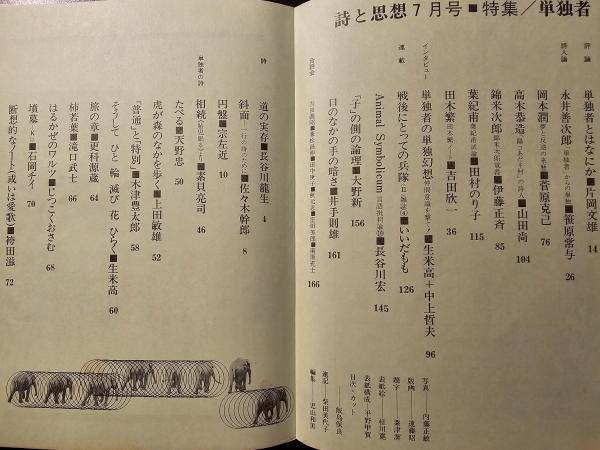 詩と思想7月号■特集／単独者
評論
単独者とはなにか■片岡文雄 14
詩人論
永井善次郎 単独者 ■笹原常与 26
岡本潤 ■菅原克己 76
高木恭造 ■山田尚 104
錦米次郎 ■伊藤正斉 85
葉紀甫 ■田村のり子 115
田木繁 ■吉田欣一 36
インタビュー
単独者の単独幻想 ■生米高＋中上哲夫 96
連載
戦後にとっての兵隊・Ⅱ ■いいだもも 126
Animal Symbolicum ■長谷川宏 145
「子」の側の論理■大野新 156
日のなかの手の暗さ■井手則雄 161
合評会
166
写真 内藤正敏
版画 遠藤昭
題字 粟津潔
表紙絵 桂川寛
表紙構成 平野甲賀
目次・カット
飯島保良
速記 柴田美代子
編集 児山和美
詩
道の実存■長谷川龍生 4
斜面 ■佐々木幹郎 8
円盤■宗左近 10
単独者の詩
相続 ■倉貝亮司 46
たべる■天野忠 50
虎が森のなかを歩く■上田敏雄 52
「普通」と特別■木津豊太郎 58
そうして ひと 輪 滅び 花 ひらく■生米高 60
旅の章■更科源蔵 64
柿若葉■滝口武士 66
はるかぜのワルツ■しづこくおさむ 68
墳墓・K■石岡チイ 70
断想的なノート（或いは愛歌）■袴田滋 72